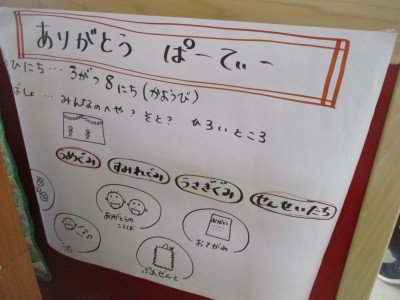 ありがとう ぱーてぃー
ひにち…3がつ8にち(かようび)
ばしょ…みんなのへや？そと？ひろいところ
うめぐみ
すみれぐみ
うさぎぐみ
せんせいたち
ありがとうの
ことば
おてがみ
ぷれぜんと